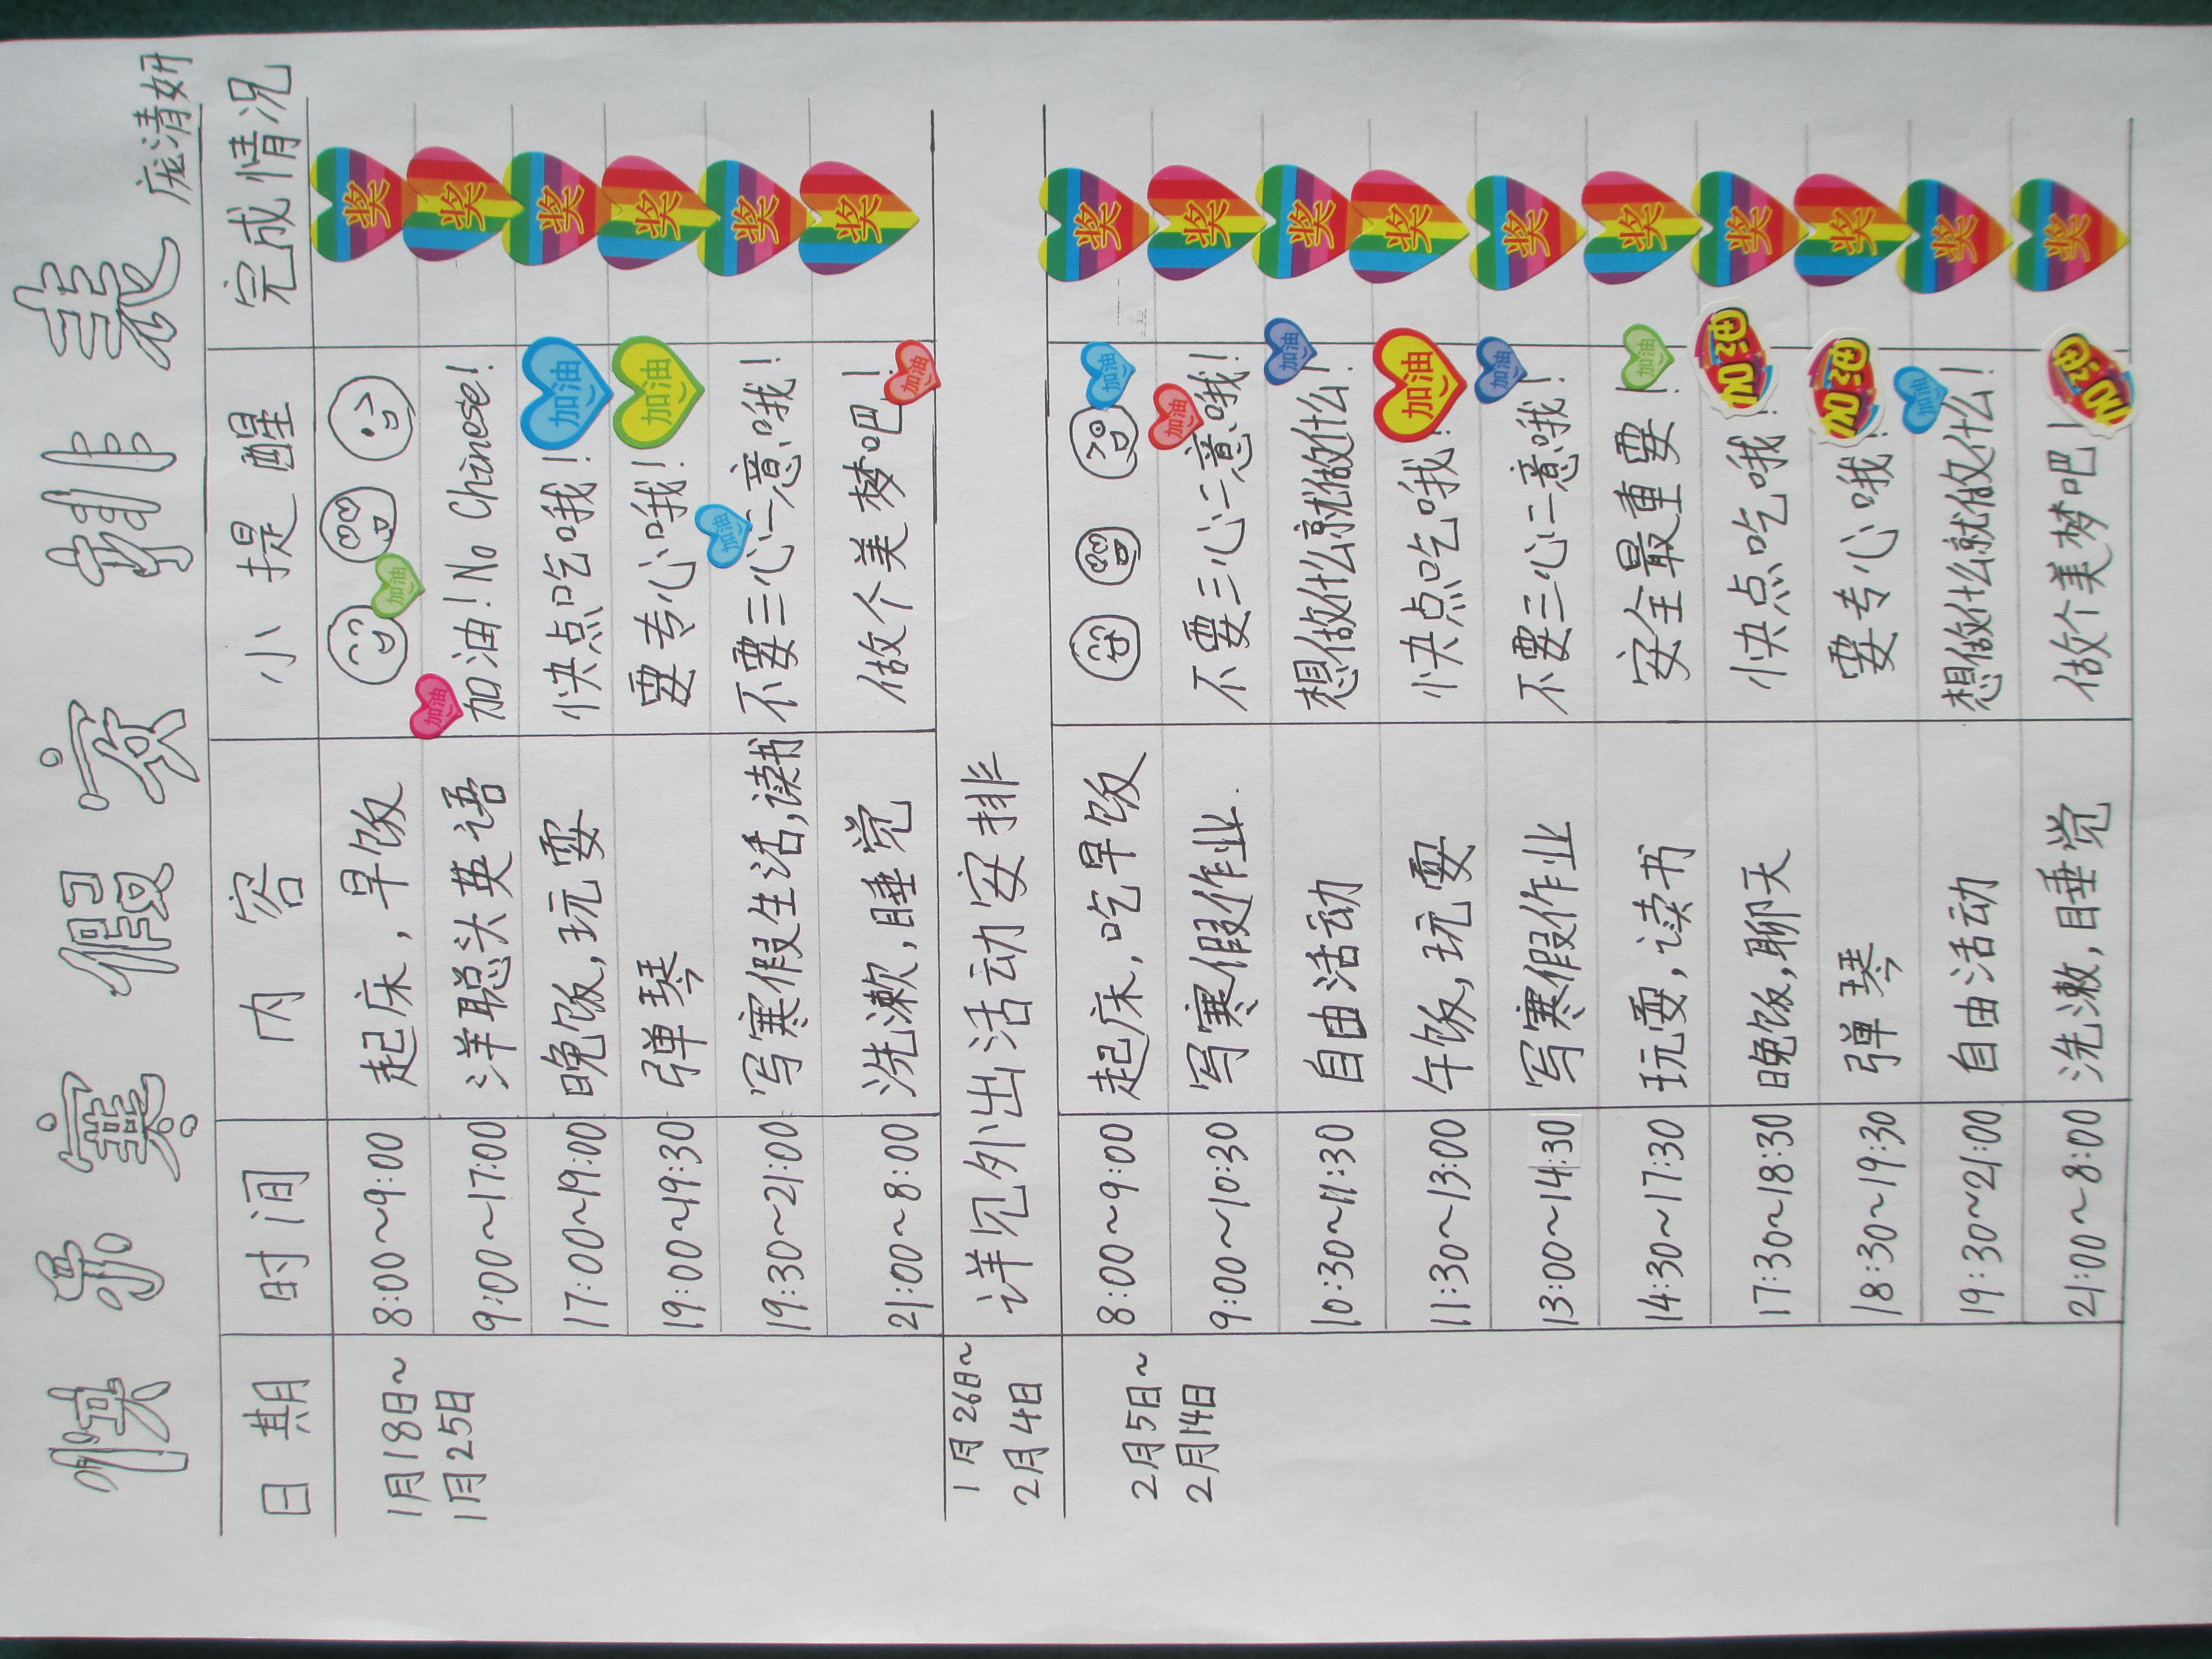 快乐寒假安排表
庞清妍
日期 时间 内容 小提醒 完成情况
1月18日~
1月25日
8:00~9:00 起床,早饭 加油 奖
9:00~17:00 洋聪头英语 加油 加油!No Chinese! 奖
17:00~19:00 晚饭,玩耍 快点吃哦! 加油 奖
19:00~19:30 弹琴 要专心哦! 加油 奖
19:30~21:00 写寒假生活,读书 不要三心二意哦! 加油 奖
21:00~8:00 洗漱,睡觉 做个美梦吧! 加油 奖
1月26日~
2月4日
详见外出活动安排
2月5日~
2月14日
8:00~9:00 起床,吃早饭 加油 奖
9:00~10:30 写寒假作业. 不要三心二意哦! 加油 奖
10:30~11:30 自由活动 想做什么就做什么! 加油 奖
11:30~13:00 午饭,玩耍 快点吃哦! 加油 奖
13:00~14:30 写寒假作业 不要三心二意哦! 加油 奖
14:30~17:30 玩耍,读书 安全最重要! 加油 奖
17:30~18:30 晚饭,聊天 快点吃哦! 加油 奖
18:30~19:30 弹琴 要专心哦! 加油 奖
19:30~21:00 自由活动 想做什么就做什么! 加油 奖
21:00~8:00 洗漱,睡觉 做个美梦吧! 加油 奖